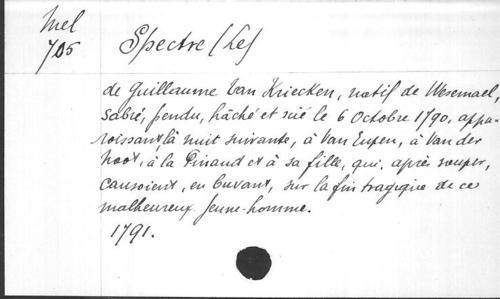 Mel
705
Spectre (Le)
de Guillaume Van Kriecken, natif de Wesemael,
sabré, pendu, hâché et scié le 6 Octobre 1790, appa-
roissant, là nuit suivante, à Van Eupen, à Van der
Noot, à la Pinaud et à sa fille, qui, après souper,
causoient, en buvant, sur la fin tragique de ce
malheureux Jeune-homme.
1791.